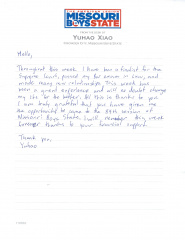 THE AMERICAN LEGION
MISSOURI
BOYS STATE
YUHAO XIAO
Hello,
Throughout this week, I have been a finalist for the
Supreme Court, passed my bar exam in law, and
made many new relationships. This week has
been a great experience and will no doubt change
my life for the better. All this is thanks to you.
I am truly grateful that you have given me
the opportunity to come to the session of
Missouri Boys State. I will remember this week
forever thanks to your financial support.
Thank you,
Yuhao